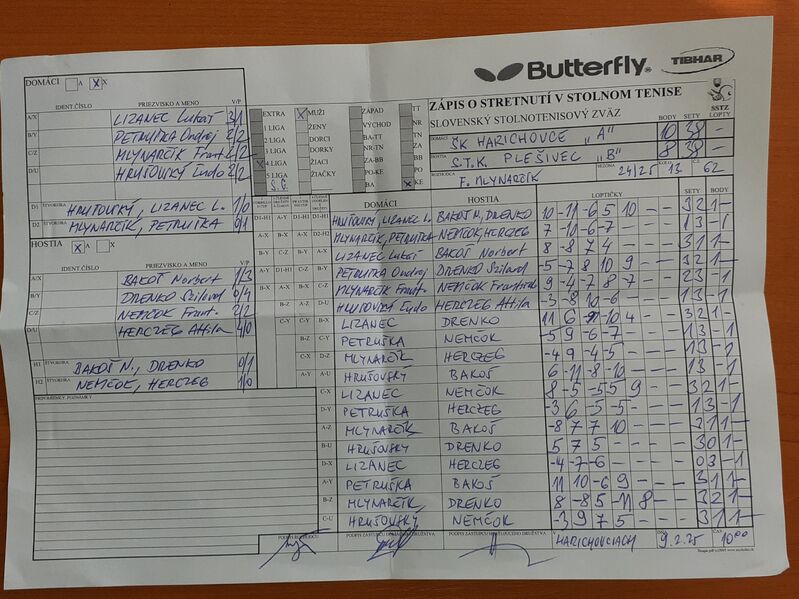 Butterfly TIBHAR
DOMÁCI A X
ZÁPIS O STRETNUTÍ V STOLNOM TENISE
SLOVENSKÝ STOLNOTENISOVÝ ZVÄZ
SSTZ
BODY SETY LOPTY
IDENT.ČÍSLO PRIEZVISKO A MENO V/P
A/X LIZANEC Lukáš 3/1
B/Y PETRUŠKA Ondrej 2/2
C/Z MLYNARČÍK Frant. 2/2
D/U HRUŠOVSKÝ Ľudo 2/2
EXTRA X MUŽI ZÁPAD TT
1 LIGA ŽENY VÝCHOD NR
2 LIGA DORCI BA-TT TN
3 LIGA DORKY NR-TN ZA
X 4 LIGA ŽIACI ZA-BB BB
5 LIGA ŽIAČKY PO-KE PO
BA X KE
DOMÁCI ŠK HARICHOVCE "A" 10 38 -
HOSTIA S.T.K. PLEŠIVEC "B" 8 38 -
ROZHODCA F. MLYNARČÍK SEZÓNA 24/25 13 62
D1 ŠTVORHRA HRUŠOVSKÝ, LIZANEC L. 1/0
D2 MLYNARČÍK, PETRUŠKA 0/1
HOSTIA X A X
IDENT.ČÍSLO PRIEZVISKO A MENO V/P
A/X BAKOŠ Norbert 1/3
B/Y DRENKO Szilard 0/4
C/Z NEMČOK Frant. 2/2
D/U HERCZEG Attila 4/0
H1 ŠTVORHRA BAKOŠ N., DRENKO 0/1
H2 ŠTVORHRA NEMČOK, HERCZEG 1/0
DOMÁCI HOSTIA LOPTIČKY SETY BODY
D1-H1 A-Y D1-H1 D1-H1 HRUŠOVSKÝ, LIZANEC L. BAKOŠ N, DRENKO 10 -11 -6 5 10 - - 3 2 1 -
MLYNARČÍK, PETRUŠKA NEMČOK, HERCZEG 7 -10 -6 -7 - - - 1 3 - 1
LIZANEC Lukáš BAKOŠ Norbert 8 -8 7 4 - - - 3 1 1 -
PETRUŠKA Ondrej DRENKO Szilard -5 -7 8 10 9 - - 3 2 1 -
MLYNARČÍK Frant. NEMČOK František 9 -4 -7 8 -7 - - 2 3 - 1
HRUŠOVSKÝ Ľudo HERCZEG Attila -3 -8 10 -6 - - - 1 3 - 1
LIZANEC DRENKO 11 6 -9 -10 4 - - 3 2 1 -
PETRUŠKA NEMČOK -5 9 -6 -7 - - - 1 3 - 1
C-X D-Z MLYNARČÍK HERCZEG -4 9 -4 -5 - - - 1 3 - 1
A-Y A-U HRUŠOVSKÝ BAKOŠ 6 -11 -8 -10 - - - 1 3 - 1
C-X LIZANEC NEMČOK 8 -5 -5 5 9 - - 3 2 1 -
D-Y PETRUŠKA HERCZEG -3 6 -5 -5 - - - 1 3 - 1
A-Z MLYNARČÍK BAKOŠ -8 7 7 10 - - - 3 1 1 -
B-U HRUŠOVSKÝ DRENKO 5 7 5 - - - - 3 0 1 -
D-X LIZANEC HERCZEG -4 -7 -6 - - - - 0 3 - 1
A-Y PETRUŠKA BAKOŠ 11 10 -6 9 - - - 3 1 1 -
B-Z MLYNARČÍK DRENKO 8 -8 5 -11 8 - - 3 2 1 -
C-U HRUŠOVSKÝ NEMČOK -3 9 7 5 - - - 3 1 1 -
PRIPOMIENKY, POZNÁMKY
PODPIS ROZHODCU PODPIS ZÁSTUPCU DOMÁCEHO DRUŽSTVA PODPIS ZÁSTUPCU HOSŤUJÚCEHO DRUŽSTVA V HARICHOVCIACH 9.2.25 ČAS 10⁰⁰